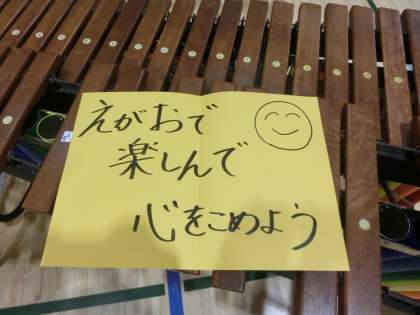 えがおで
楽しんで
心をこめよう